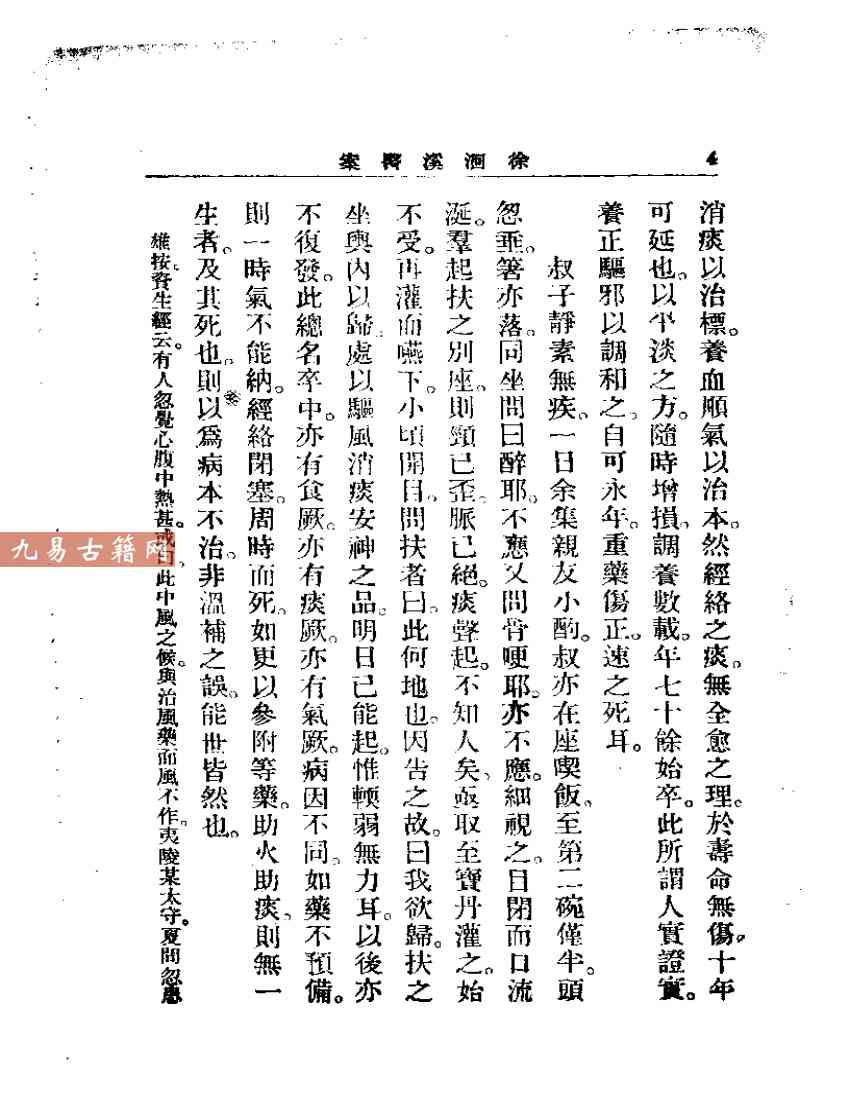 徐洄溪醫案
4
消痰以治標。養血順氣以治本。然經絡之痰。無全愈之理。於壽命無傷。十年
可延也。以平淡之方。隨時增損。調養數載。年七十餘始卒。此所謂人實證實。
養正驅邪以調和之。自可永年。重藥傷正。速之死耳。
叔子靜素無疾。一日余集親友小酌。叔亦在座喫飯。至第二碗僅半。頭
忽垂。箸亦落。同坐問曰醉耶。不應。又問骨哽耶。亦不應。細視之。目閉而口流
涎。羣起扶之別座。則頸已歪。脈已絕。痰聲起。不知人矣。亟取至寶丹灌之。始
不受。再灌而嚥下。小頃開目。問扶者曰。此何地也。因告之故。曰我欲歸。扶之
坐輿內以歸。處以驅風消痰安神之品。明日已能起。惟輭弱無力耳。以後亦
不復發。此總名卒中。亦有食厥。亦有痰厥。亦有氣厥。病因不同。如藥不預備。
則一時氣不能納。經絡閉塞。周時而死。如更以參附等藥。助火助痰。則無一
生者。及其死也。則以爲病本不治。非溫補之誤。能世皆然也。
雄按。資生經云。有人忽覺心腹中熱甚。或曰。此中風之候。與治風藥而風不作。夷陵某太守。夏間忽患
九易古籍网